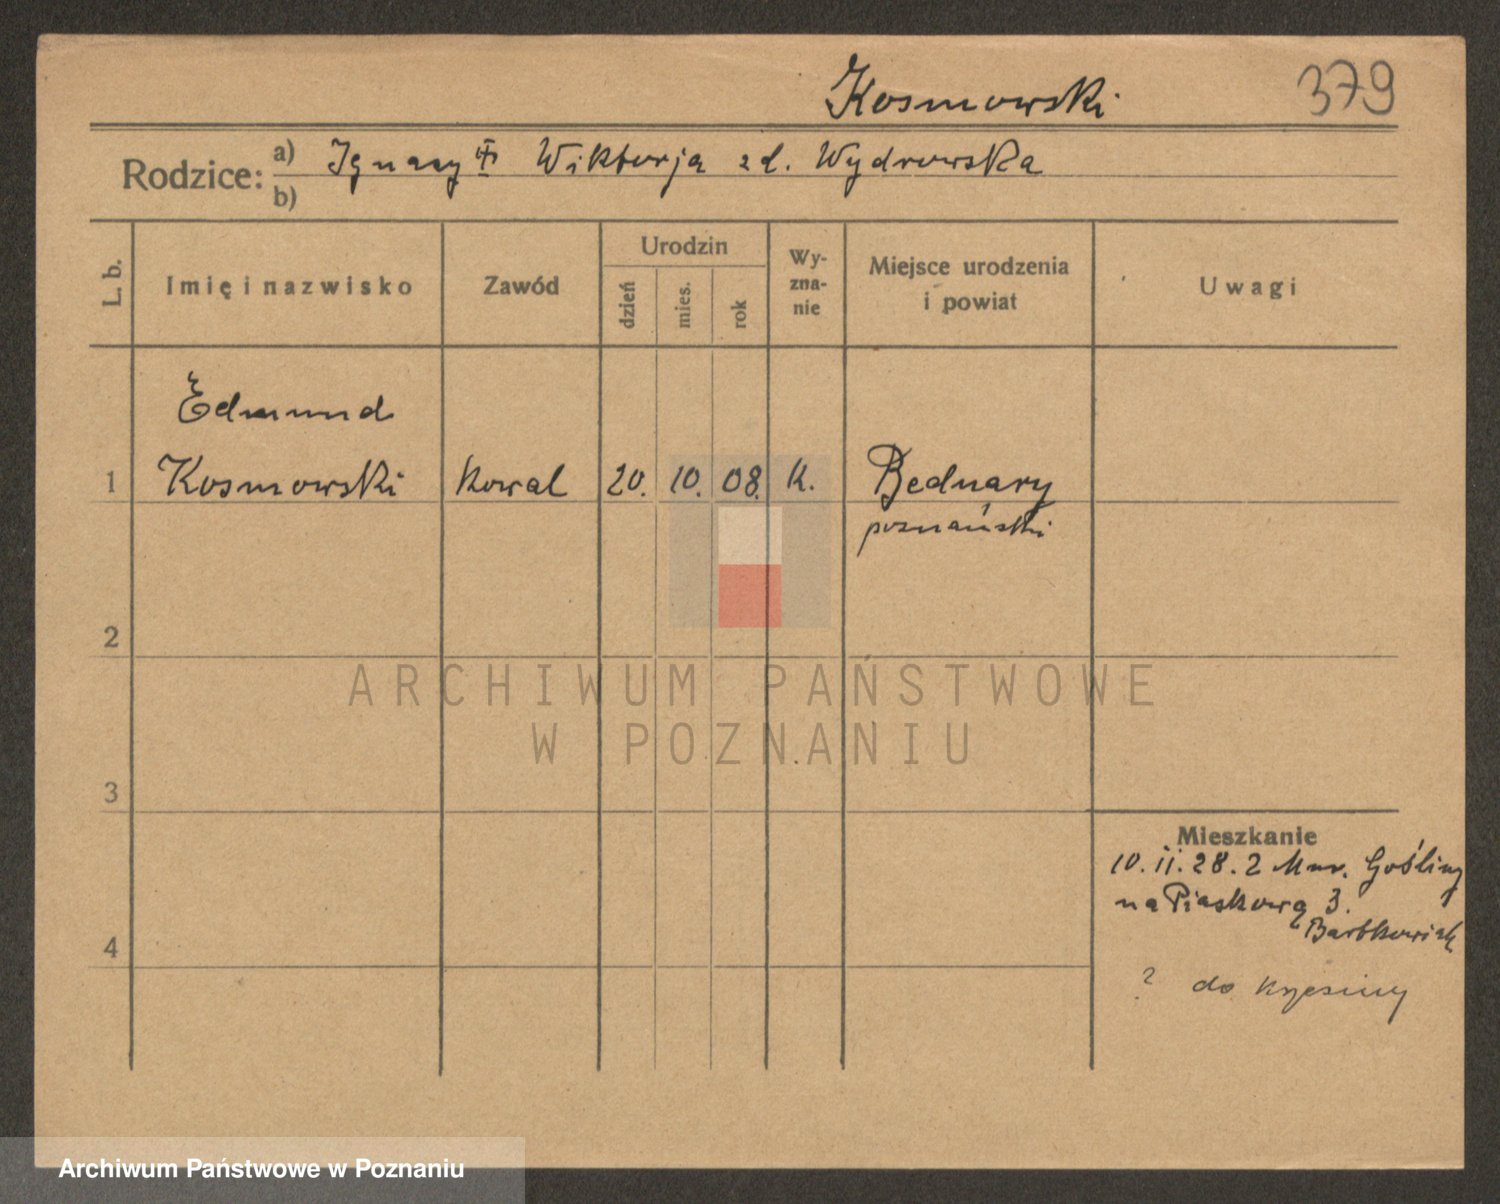 Kosmowski 379
Rodzice: a) Ignacy Wiktorja zd. Wydrowska
b)
L. b. Imię i nazwisko Zawód Urodzin dzień mies. rok Wy-zna-nie Miejsce urodzenia i powiat Uwagi
Edmund
1 Kosmowski kowal 20. 10. 08. k. Bednary
poznański
2
ARCHIWUM PAŃSTWOWE
W POZNANIU
3
Mieszkanie
10.11.28. z Mur. Gośliny
na Piaskową 3.
Bartkowiak
4
? do
Archiwum Państwowe w Poznaniu